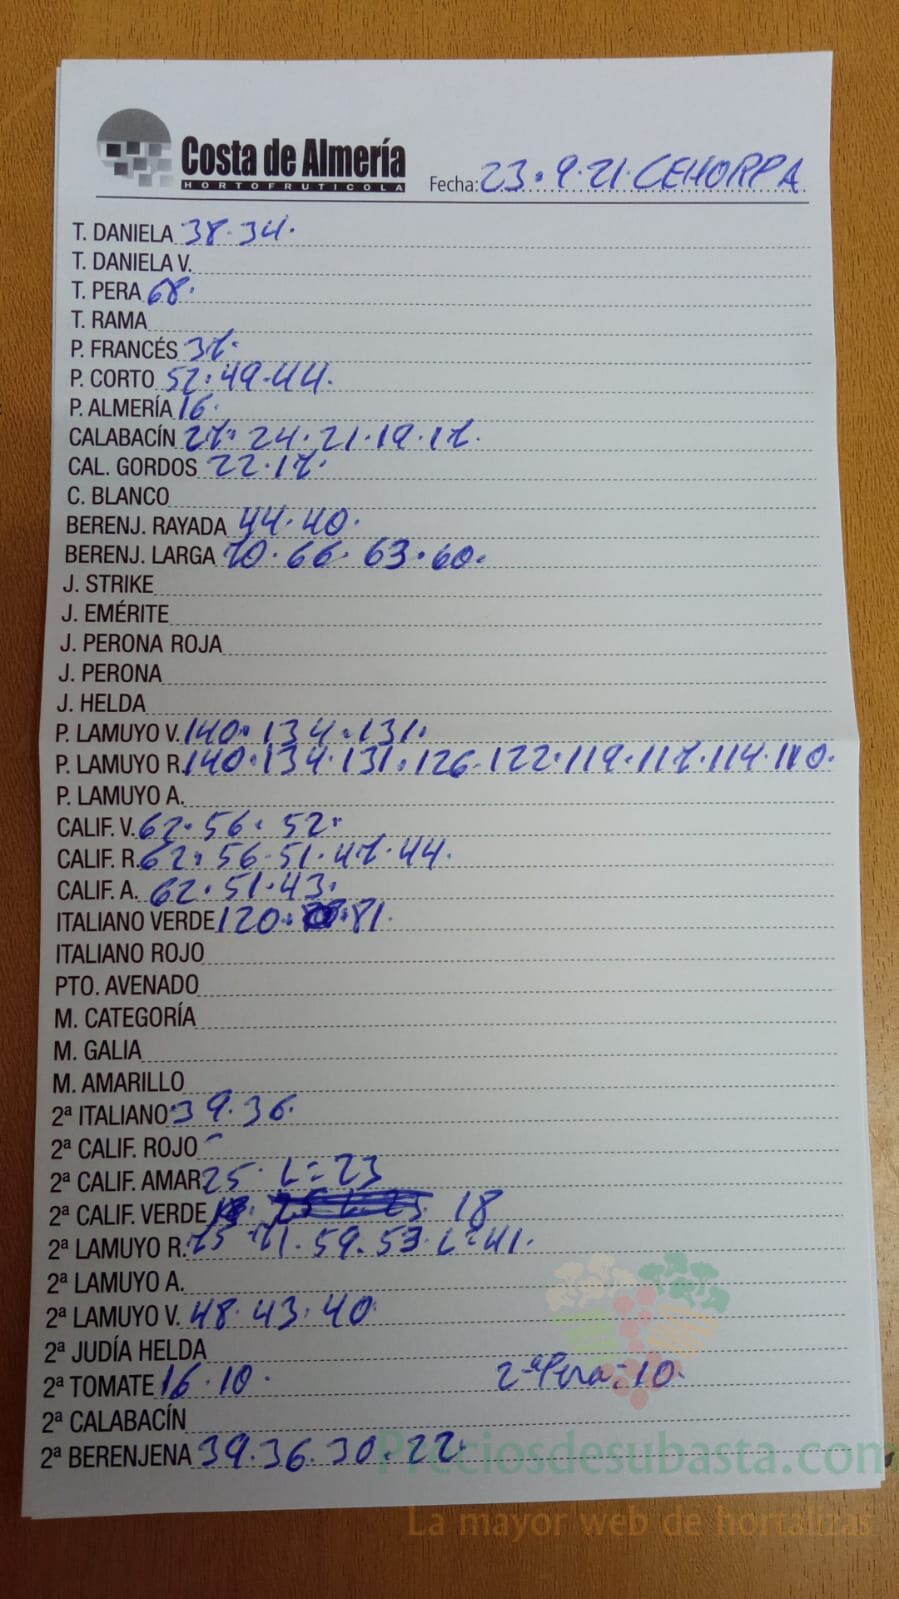 Costa de Almería
HORTOFRUTICOLA
Fecha: 23.9.21. CEHORPA
T. DANIELA 38.34.
T. DANIELA V.
T. PERA 68.
T. RAMA
P. FRANCÉS 37.
P. CORTO 52.49.44.
P. ALMERÍA 16.
CALABACÍN 27.24.21.19.17.
CAL. GORDOS 22.17.
C. BLANCO
BERENJ. RAYADA 44.40.
BERENJ. LARGA 70.66.63.60.
J. STRIKE
J. EMÉRITE
J. PERONA ROJA
J. PERONA
J. HELDA
P. LAMUYO V. 140.134.131.
P. LAMUYO R. 140.134.131.126.122.119.117.114.110.
P. LAMUYO A.
CALIF. V. 62.56.52.
CALIF. R. 62.56.51.47.44.
CALIF. A. 62.51.43.
ITALIANO VERDE 120. 81.
ITALIANO ROJO
PTO. AVENADO
M. CATEGORÍA
M. GALIA
M. AMARILLO
2ª ITALIANO 39.36.
2ª CALIF. ROJO
2ª CALIF. AMAR. 25. L=23
2ª CALIF. VERDE 18
2ª LAMUYO R. 75 71.59.53.L=41.
2ª LAMUYO A.
2ª LAMUYO V. 48.43.40.
2ª JUDÍA HELDA
2ª TOMATE 16.10. 2ª Pera=10.
2ª CALABACÍN
2ª BERENJENA 39.36.30.22.
Preciosdesubasta.com
La mayor web de hortalizas